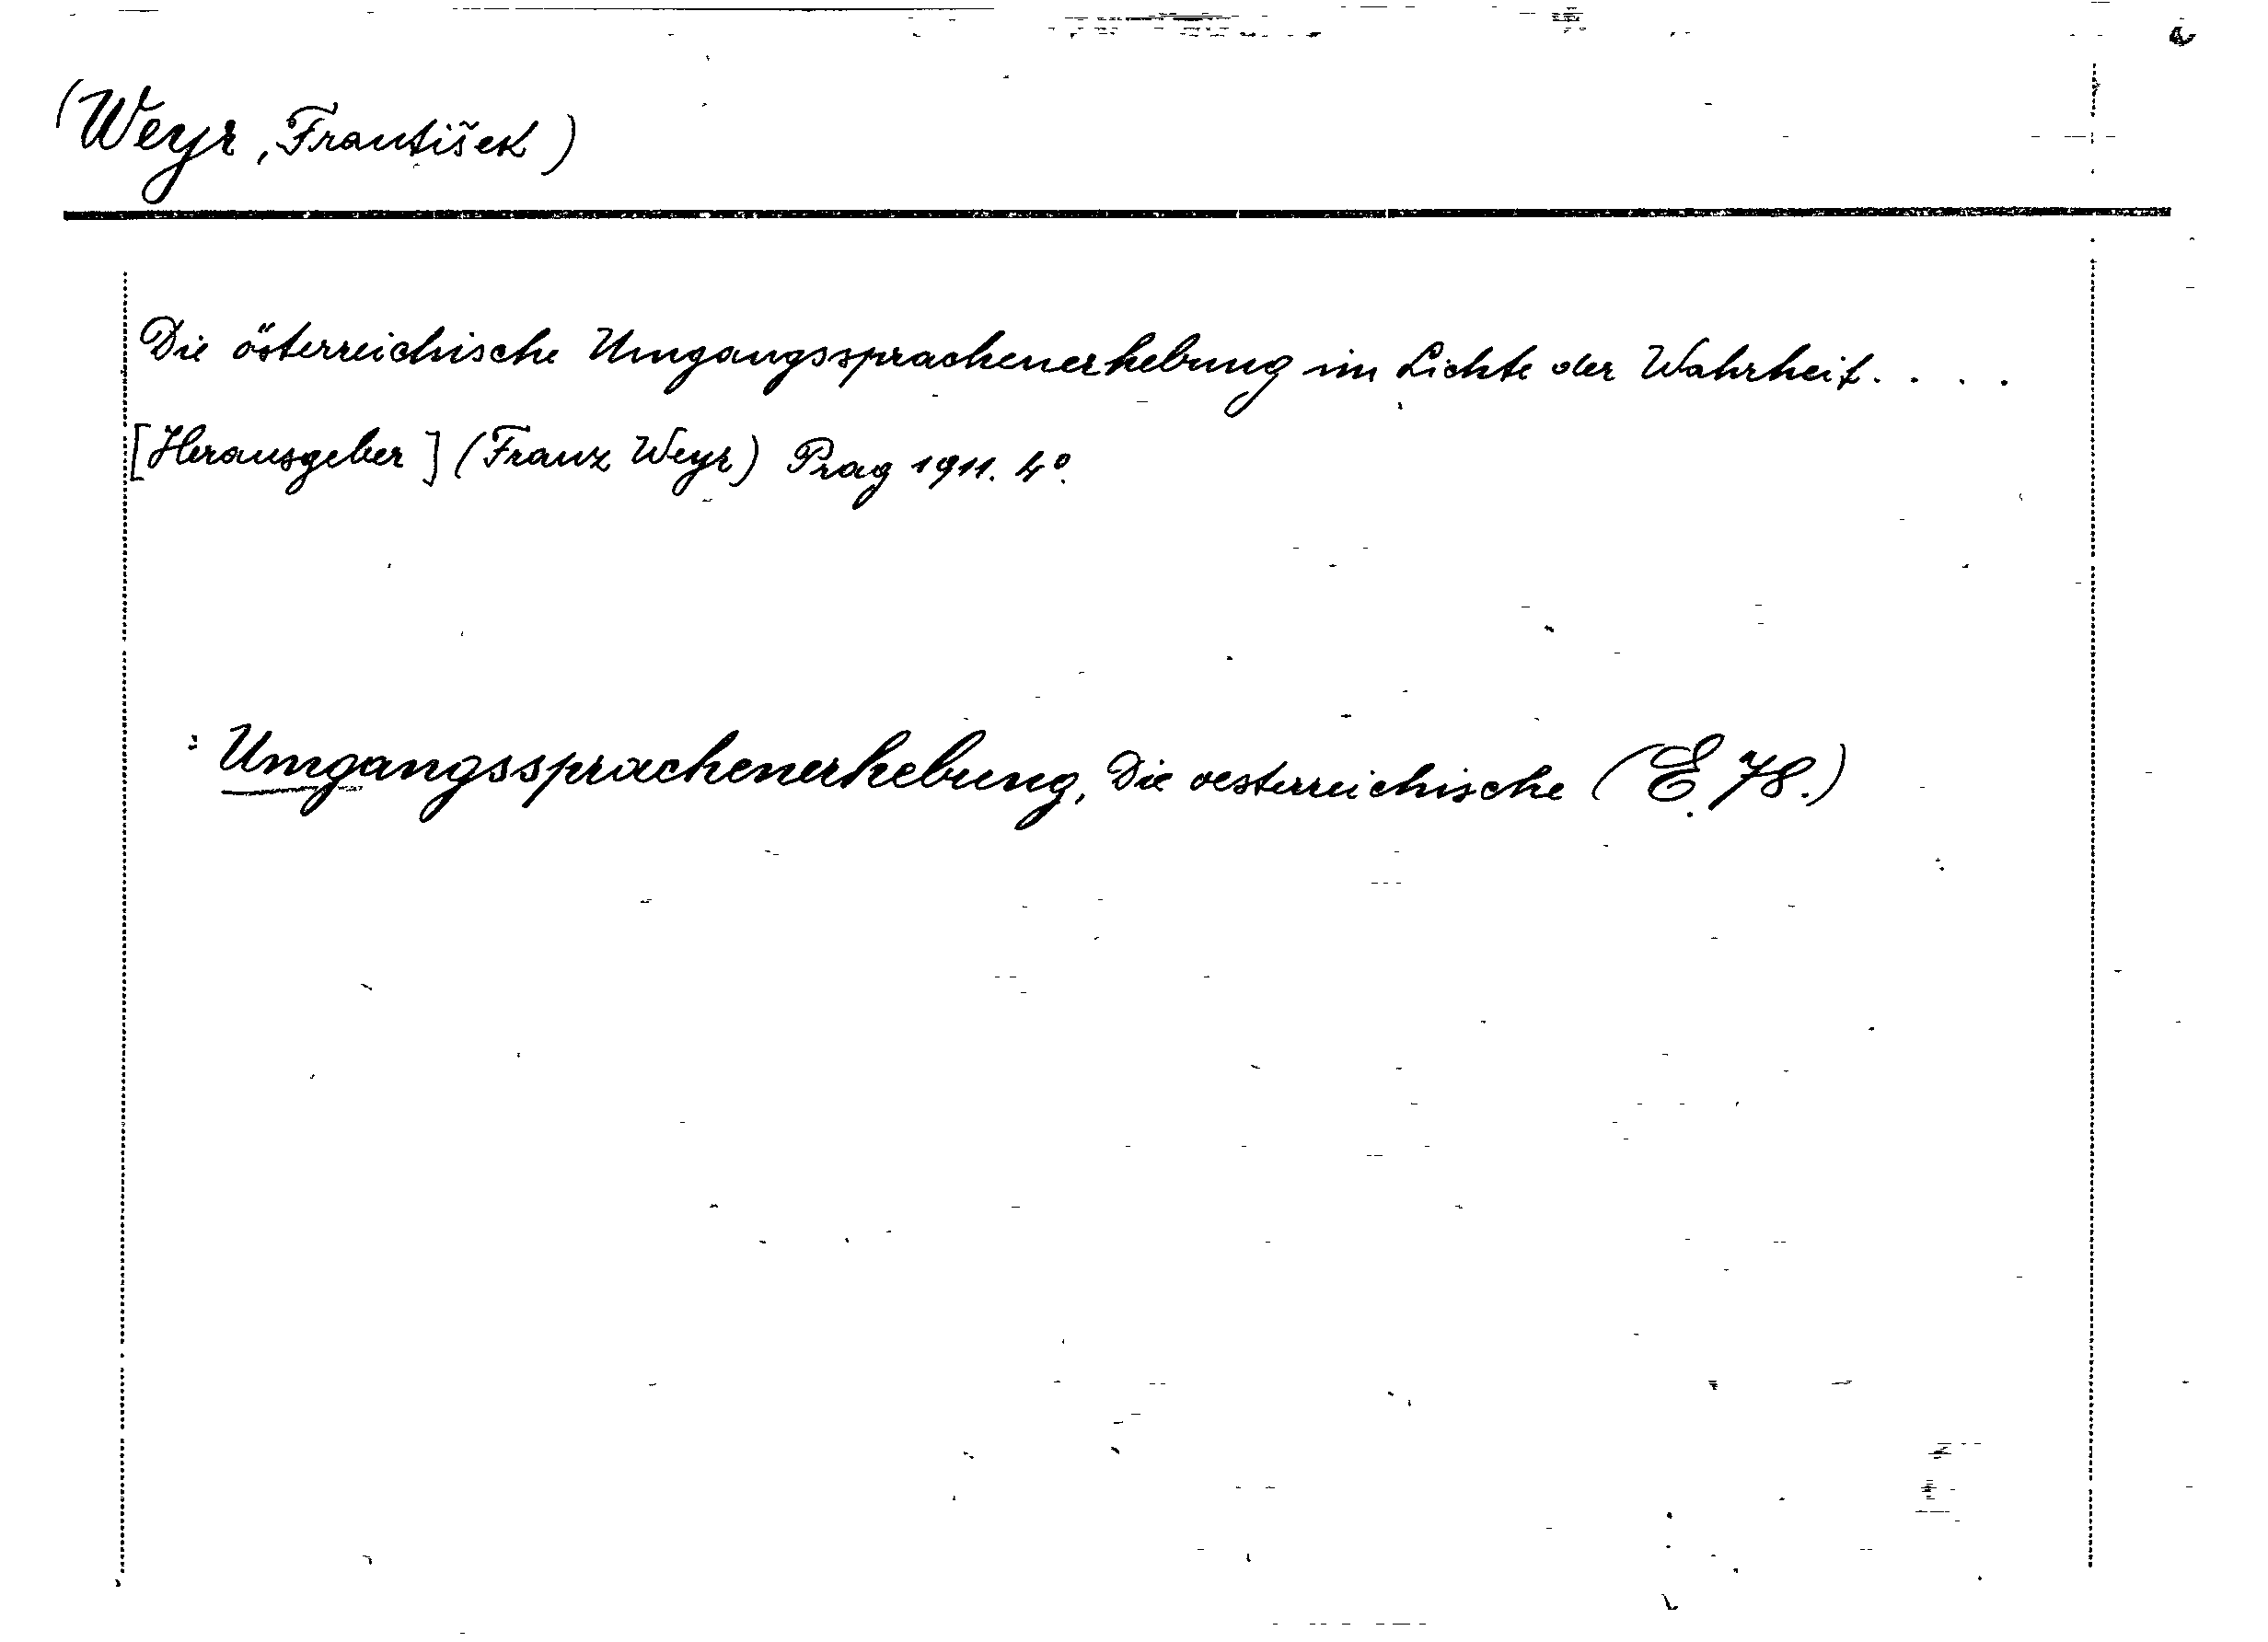 (Weyr, František)
Die österreichische Umgangssprachenerhebung im Lichte der Wahrheit. . . .
[Herausgeber] (Franz Weyr) Prag 1911. 4°.
: Umgangssprachenerhebung, Die oesterreichische (E. 78.)